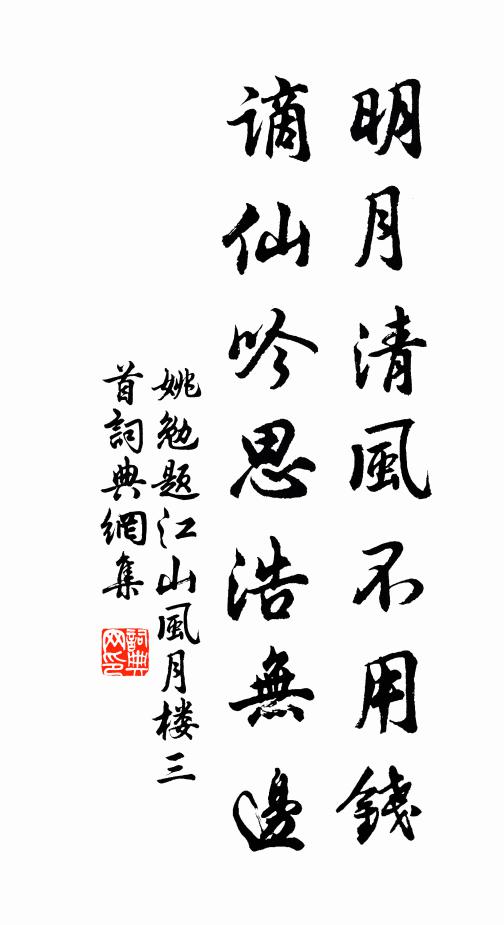 明月清風不用錢
謫仙吟思浩無邊
姚勉题江山風月楼三
首詞典網集
詞典
网印